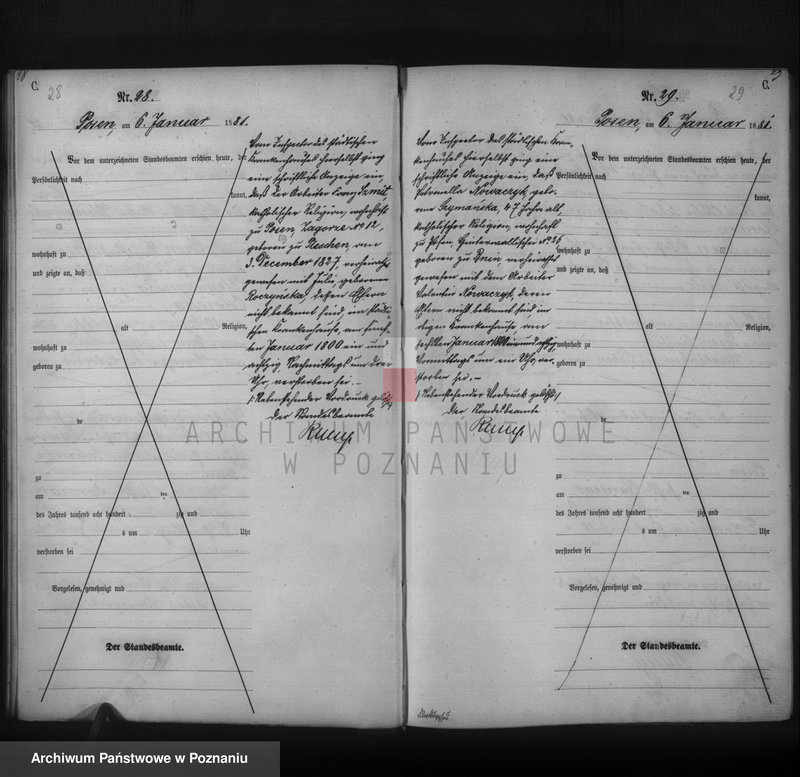 28
C.
28
Nr. 28.
Posen, am 6. Januar 1881.
Vor dem unterzeichneten Standesbeamten erschien heute, der
Persönlichkeit nach
kannt,
wohnhaft zu
und zeigte an, daß
alt Religion,
wohnhaft zu
geboren zu
de
zu
am ten
des Jahres tausend acht hundert zig und
s um Uhr
verstorben sei
Vorgelesen, genehmigt und
Der Standesbeamte.
Vom Inspector des städtischen
Krankenhauses hierselbst ging
eine schriftliche Anzeige ein,
daß der Arbeiter Franz Szmit
katholischer Religion, wohnhaft
zu Posen Zagorze No 12,
geboren zu Pleschen, am
3. December 1827, verheirathet
gewesen mit Julie geborenen
Roczynska, dessen Eltern
nicht bekannt sind, im städti-
schen Krankenhause, am fünf-
ten Januar 1800 ein und
achtzig, Nachmittags um drei
Uhr, verstorben sei.-
Nebenstehender Vordruck gelöscht
Der Standesbeamte
29
C.
29
Nr. 29.
Posen, am 6. Januar 1881.
Vom Inspector des städtischen Kran-
kenhauses hierselbst ging eine
schriftliche Anzeige ein, daß
Petronella Nowaczyk, gebo-
rene Szymańska, 47 Jahre alt,
katholischer Religion, wohnhaft
zu Posen Hinterwallischei No 26
geboren zu Dnin verheirathet
gewesen mit dem Arbeiter
Valentin Nowaczyk, deren
Eltern nicht bekannt sind im
Krankenhause am
sechsten Januar
Vormittags um ein Uhr, ver-
storben sei.-
Nebenstehender Vordruck gelöscht
Der Standesbeamte
Vor dem unterzeichneten Standesbeamten erschien heute, der
Persönlichkeit nach
kannt,
wohnhaft zu
und zeigte an, daß
alt Religion,
wohnhaft zu
geboren zu
de
zu
am ten
des Jahres tausend acht hundert zig und
s um Uhr
verstorben sei
Vorgelesen, genehmigt und
Der Standesbeamte.
ARCHIWUM PAŃSTWOWE
W POZNANIU
Archiwum Państwowe w Poznaniu